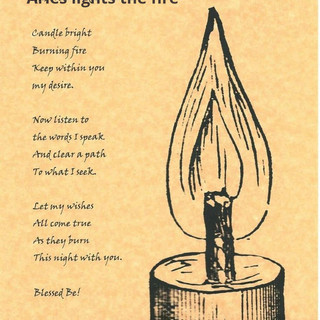 lights the fire
Candle bright
Burning fire
Keep within you
my desire.
Now listen to
the words I speak
And clear a path
To what I seek.
Let my wishes
All come true
As they burn
This night with you.
Blessed Be!